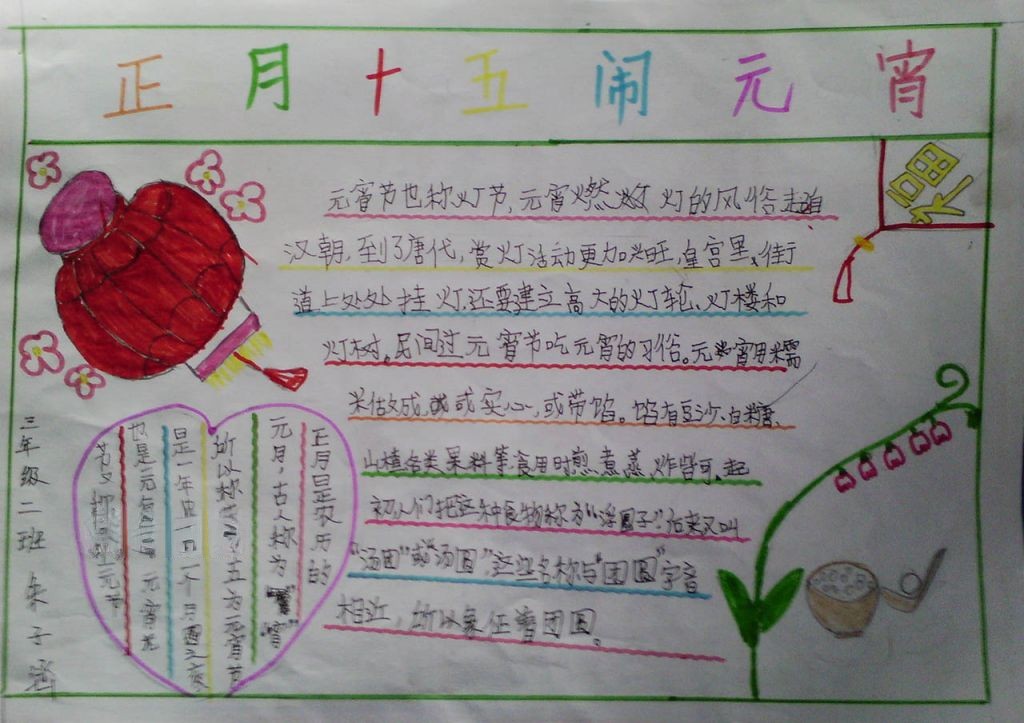 正月十五闹元宵
福
元宵节也称灯节,元宵燃灯的风俗起自
汉朝,到了唐代,赏灯活动更加兴旺,皇宫里、街
道上处处挂灯,还要建立高大的灯轮、灯楼和
灯树。民间过元宵节吃元宵的习俗。元宵用糯
米做成,或实心,或带馅。馅有豆沙、白糖、
山楂各类果料等食用时煎煮蒸炸皆可。起
初,人们把这种食物称为“浮圆子”,后来又叫
“汤团”或“汤圆”,这些名称与“团圆”字音
相近,所以象征着团圆。
正月是农历的
元月,古人称为“宵”
所以称 五为元宵节
是一年中一个月圆之夜
也是 元 元宵
节又称 上元节
三年级二班 朱子涵